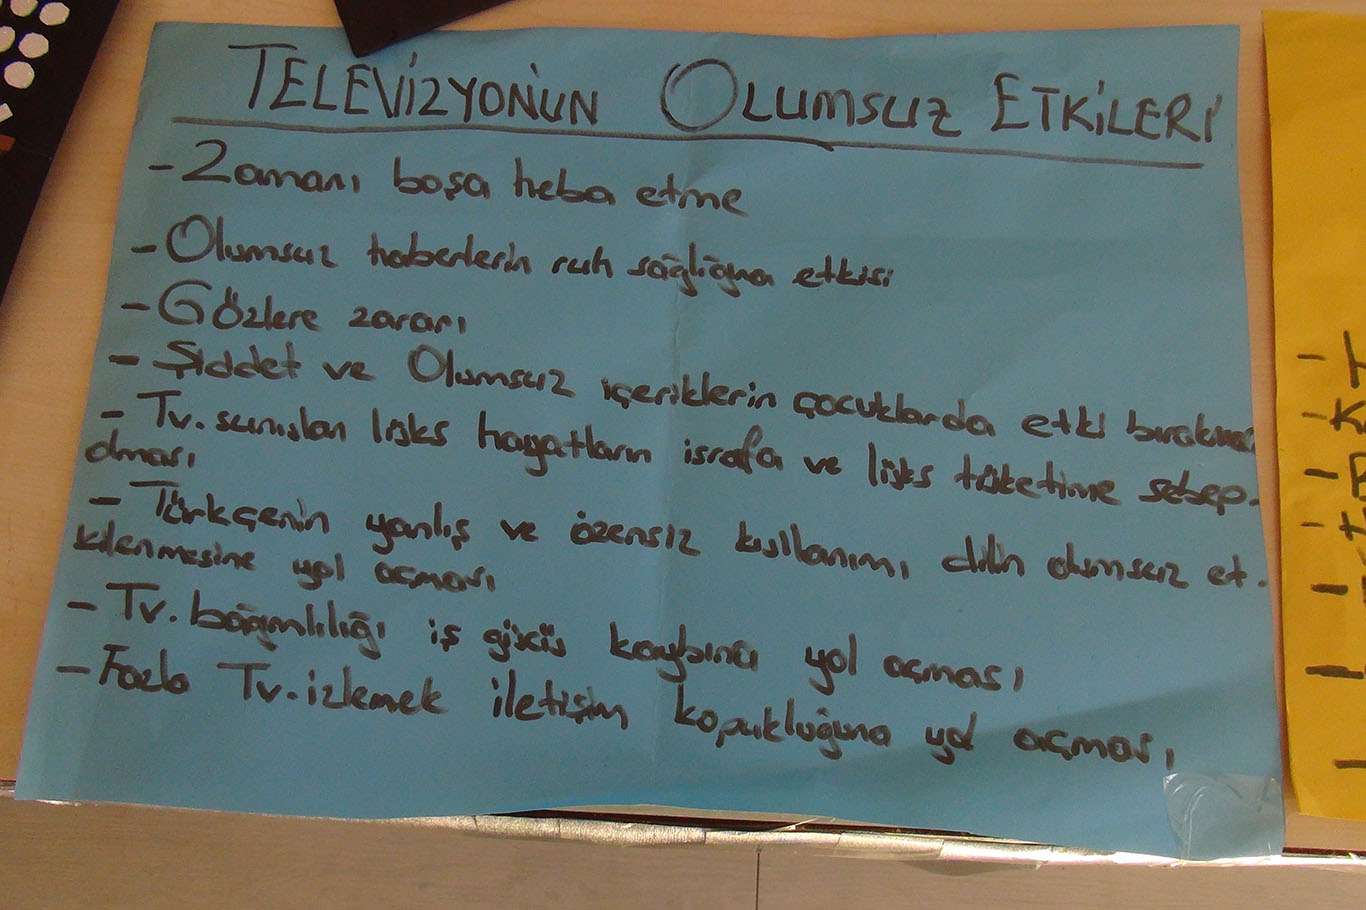 TELEVİZYON'UN OLUMSUZ ETKİLERİ
- Zamanı boşa heba etme
- Olumsuz haberlerin ruh sağlığına etkisi
- Gözlere zararı
- Şiddet ve Olumsuz içeriklerin çocuklarda etki bırakması
- Tv. sunulan lüks hayatların israfa ve lüks tüketime sebep
olması
- Türkçenin yanlış ve özensiz kullanımı, dilin olumsuz et-
kilenmesine yol açması
- Tv. bağımlılığı iş gücü kaybına yol açması
- Fazla Tv. izlemek iletişim kopukluğuna yol açması